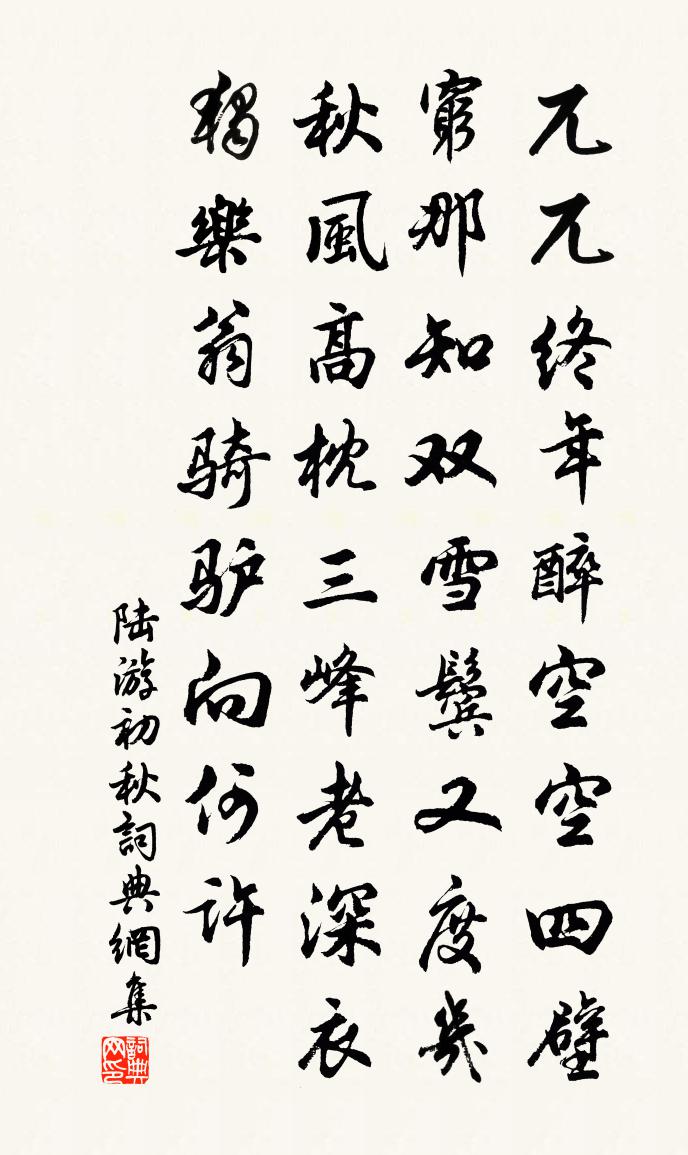 兀兀终年醉空空四壁
窮那知双雪鬓又度幾
秋風高枕三峰老深衣
獨樂翁骑驴向何许
陆游初秋詞典網集
詞典网印